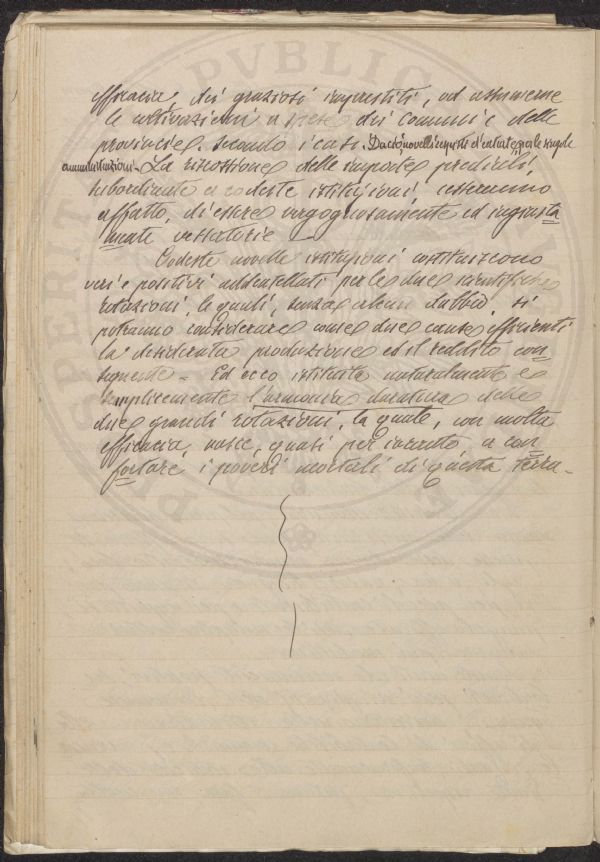 efficacia, dei graziosi imprestiti, od assumerne
le coltivazioni a spese dei comuni e delle
provincie, secondo i casi. Da ciò novelli cespiti d'entrate per le singole
amministrazioni. La riscossione delle imposte prediali,
subordinate a codeste istituzioni, cesseranno
affatto, di essere vergognosamente ed ingiusta
mente vessatorie
Codeste novelle istituzioni costituiscono
veri e positivi addentellati per le due scientifiche
rotazioni, le quali, senza alcun dubbio, si
potranno considerare come due cause efficienti
la desiderata produzione ed il reddito con
seguente. Ed ecco istituita naturalmente e
semplicemente l'armonia duratura delle
due grandi rotazioni, la quale, con molta
efficacia, nasce, quasi per incanto, a con
fortare i poveri mortali di questa terra.
PVBLIC